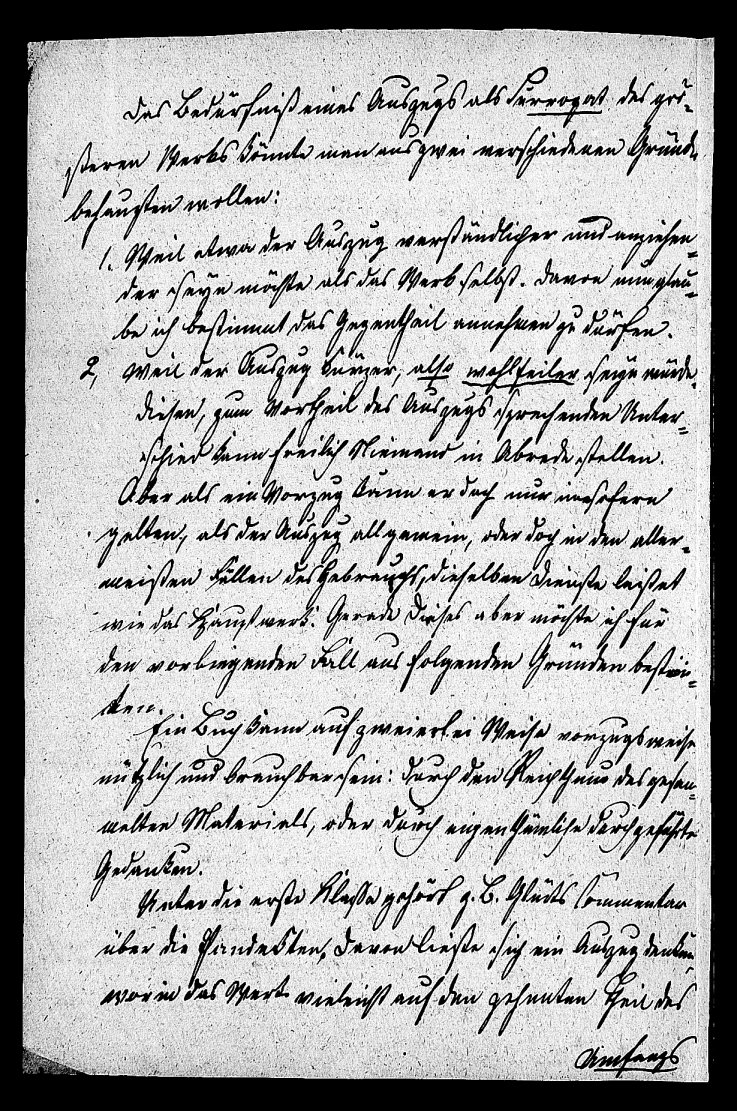 Das Bedürfniß eines Auszugs als Surrogat des grö-
ßeren Werks könnte man aus zwei verschiedenen Gründen
behaupten wollen:
1. Weil etwa der Auszug verständlicher und anziehen-
der seyn möchte als das Werk selbst. Davon nun glau-
be ich bestimmt das Gegentheil annehmen zu dürfen.
2, Weil der Auszug kürzer, also wohlfeiler seyn würde,
diesen, zum Vortheil des Auszugs sprechenden Unter-
schied kann freilich Niemand in Abrede stellen.
Aber als ein Vorzug kann er doch nur insofern
gelten, als der Auszug allgemein, oder doch in den aller-
meisten Fällen des Gebrauchs, dieselben Dienste leistet
wie das Hauptwerk. Gerade dieses aber möchte ich für
den vorliegenden Fall aus folgenden Gründen bestrei-
ten.
Ein Buch kann auf zweierlei Weise vorzugsweise
nützlich und brauchbar sein: durch den Reichthum des gesam-
melten Materials, oder durch eigenthümliche durchgeführte
Gedanken.
Unter die erste Klasse gehört z. B. Glücks Commentar
über die Pandekten, davon ließe sich ein Auszug denken,
worin das Werk vieleicht auf den zehnten Theil des
Umfangs